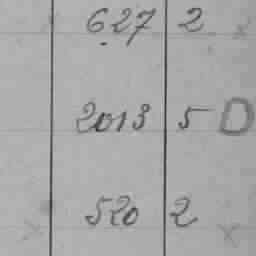 627 2
2013 5 D
520 2